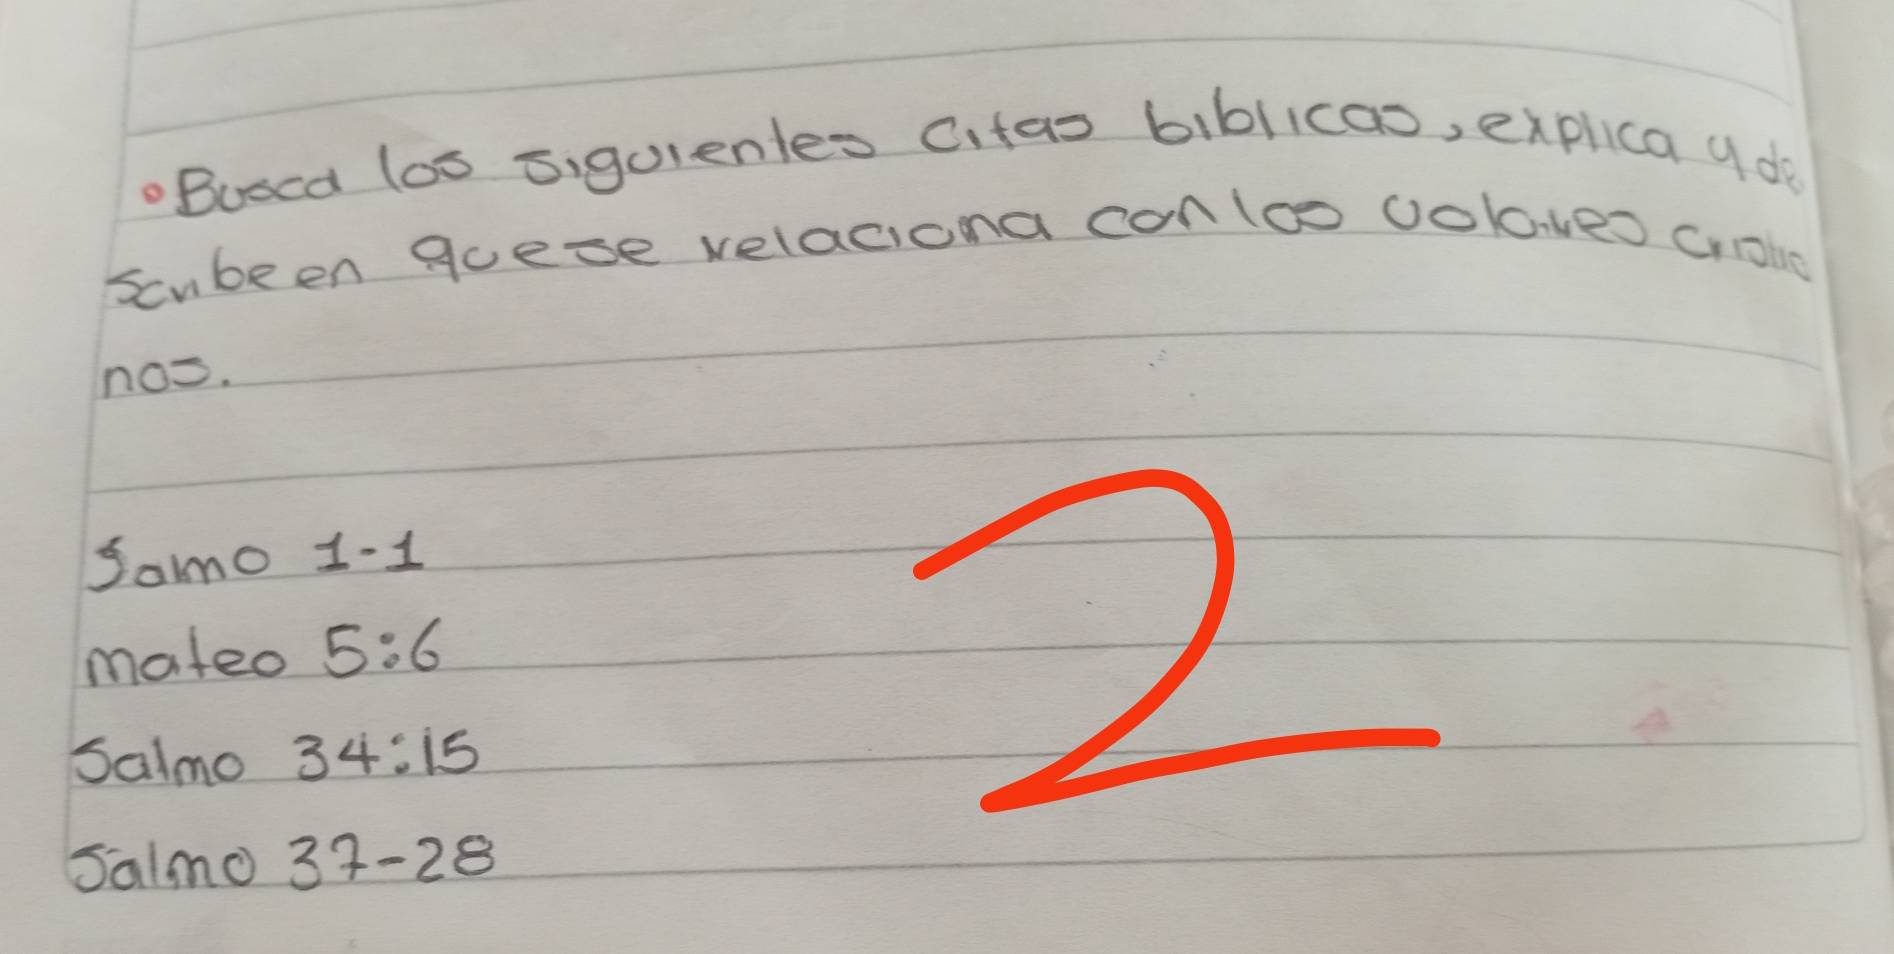 Buscd los siguientes citas biblicas, explica y de
scribe en que se relaciona con los valores cristia
nos.
Salmo 1-1
mateo 5:6
Salmo 34:15
Salmo 37-28
2